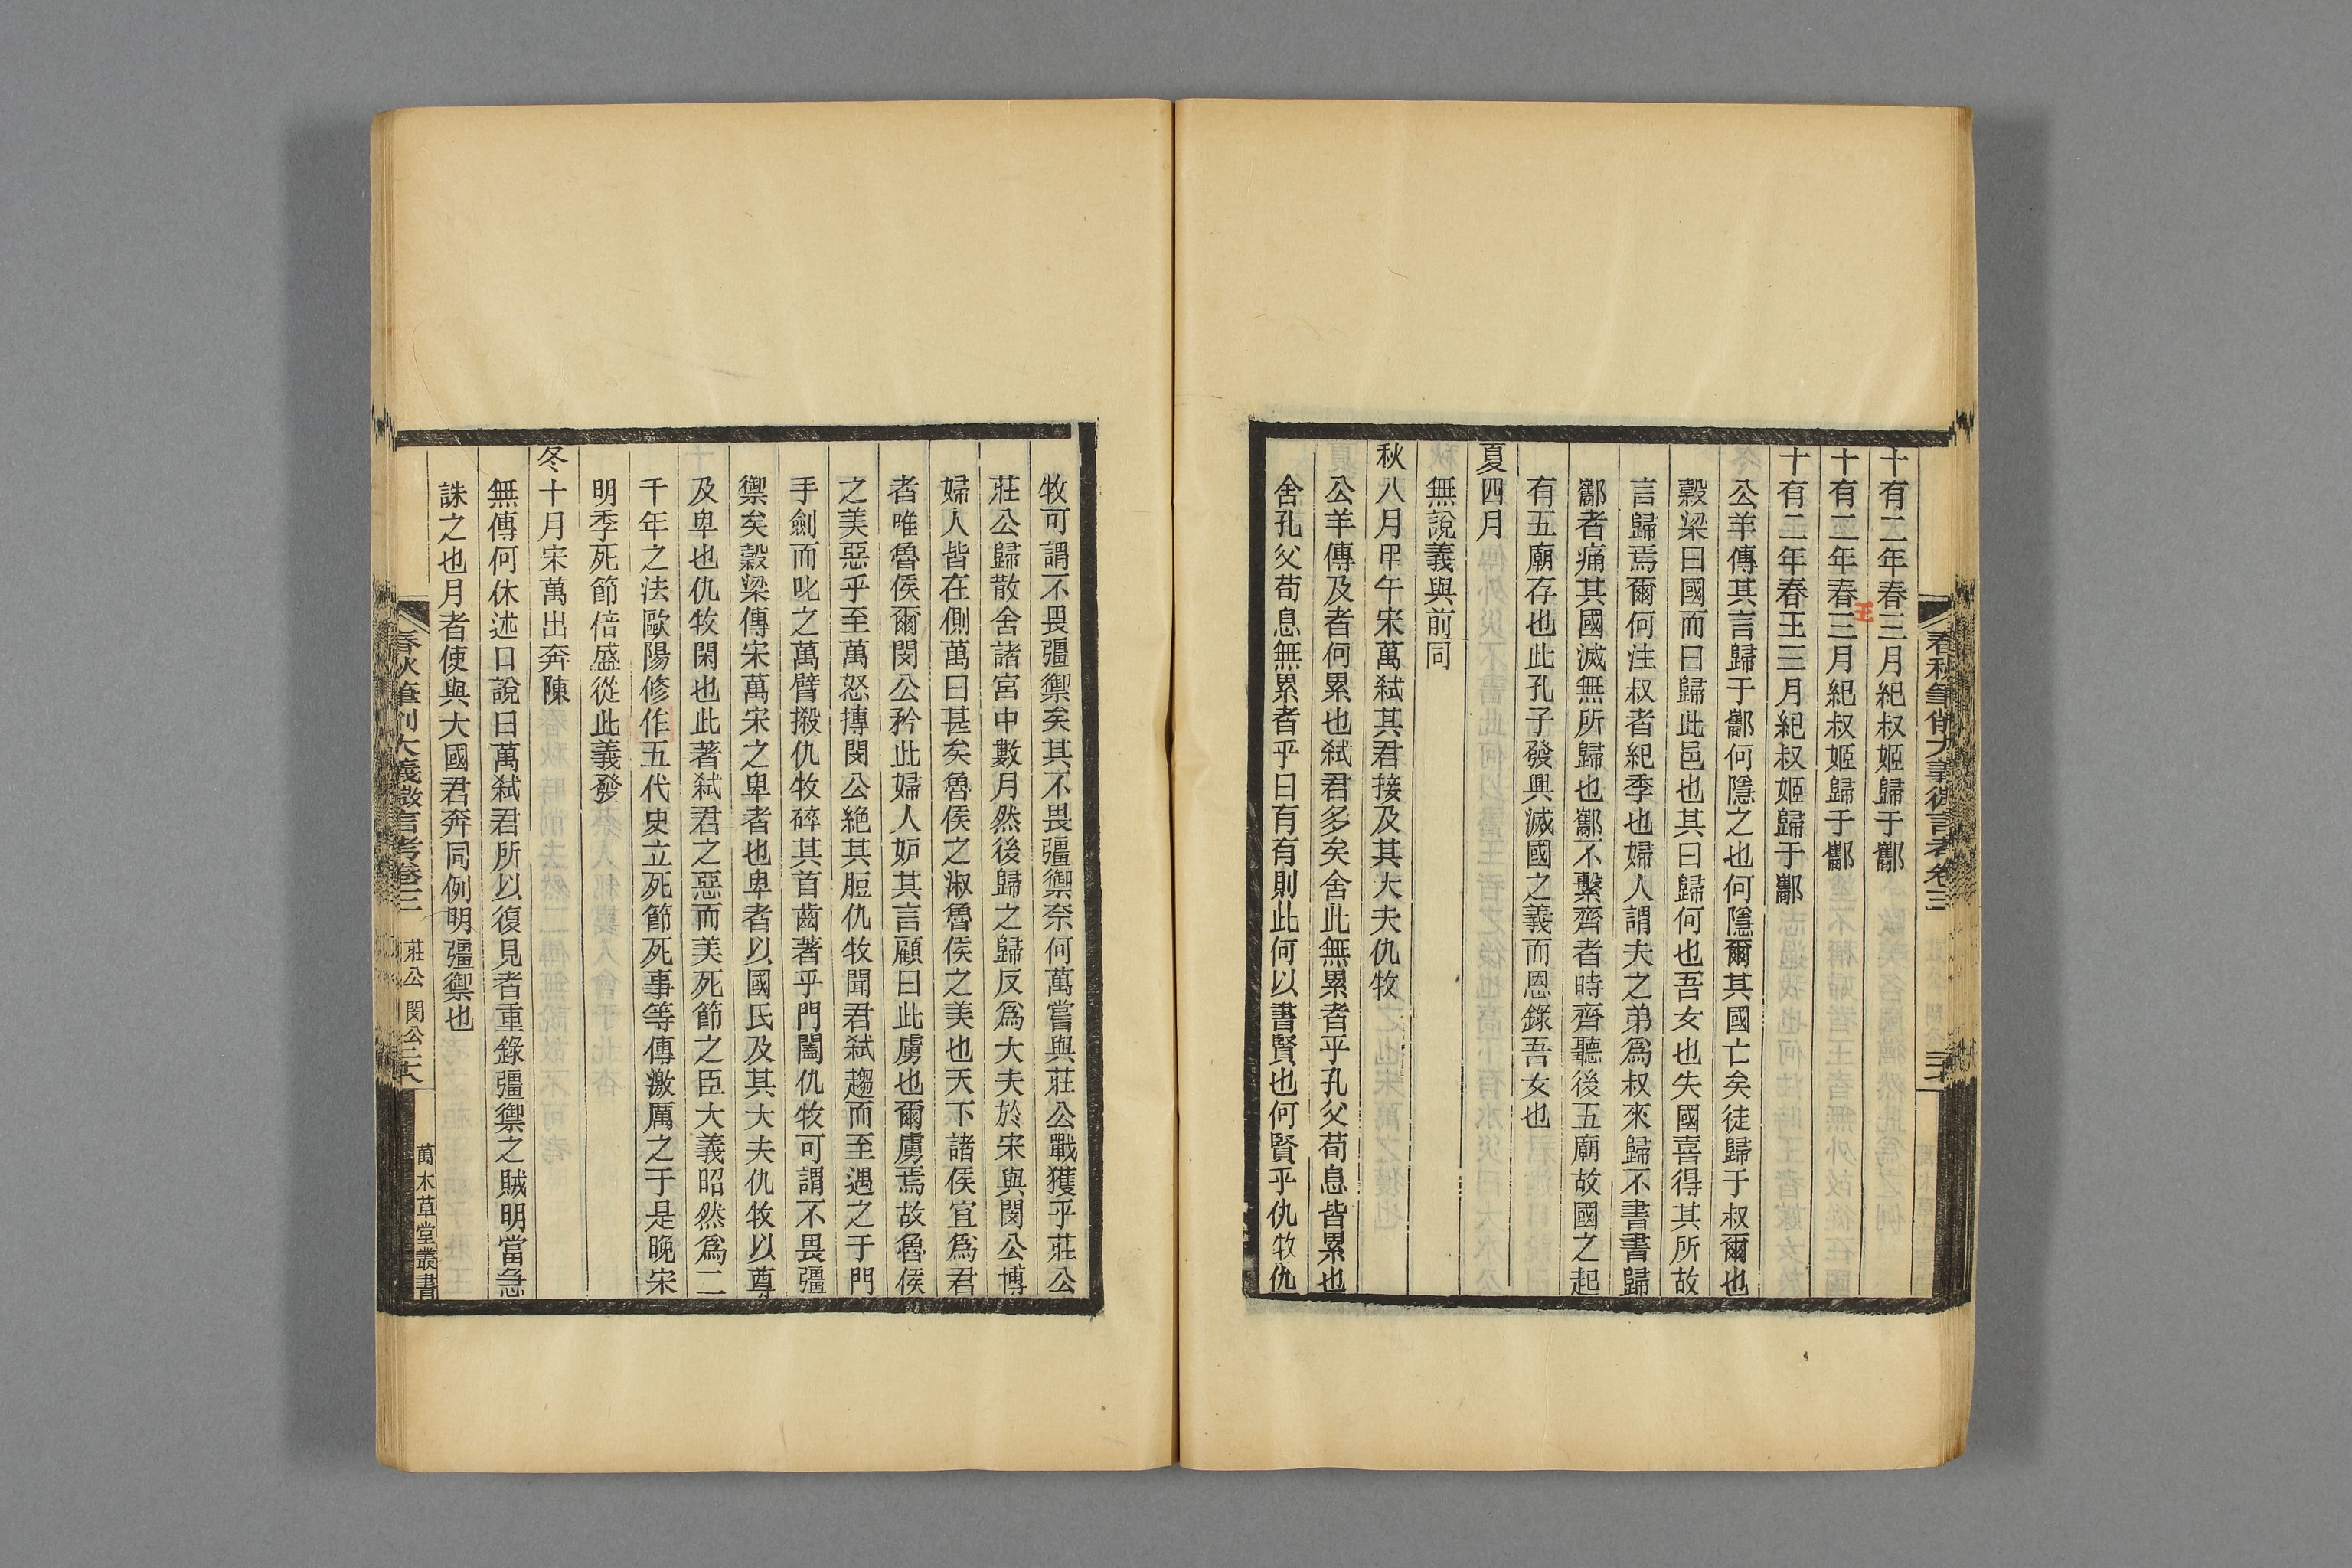 春秋筆削大義微言考卷三
十有二年春三月紀叔姬歸于酅
十有二年春三月紀叔姬歸于酅
王
十有二年春王三月紀叔姬歸于酅
公羊傳其言歸于酅何隱之也何隱爾其國亡矣徒歸于叔爾也
穀梁曰國而曰歸此邑也其曰歸何也吾女也失國喜得其所故
言歸焉爾何注叔者紀季也婦人謂夫之弟爲叔來歸不書書歸
酅者痛其國滅無所歸也酅不繫齊者時齊聽後五廟故國之起
有五廟存也此孔子發興滅國之義而恩錄吾女也
夏四月
無說義與前同
秋八月甲午宋萬弑其君接及其大夫仇牧
公羊傳及者何累也弑君多矣舍此無累者乎孔父荀息皆累也
舍孔父荀息無累者乎曰有有則此何以書賢也何賢乎仇牧仇
牧可謂不畏彊禦矣其不畏彊禦奈何萬嘗與莊公戰獲乎莊公
莊公歸散舍諸宮中數月然後歸之歸反爲大夫於宋與閔公博
婦人皆在側萬曰甚矣魯侯之淑魯侯之美也天下諸侯宜爲君
者唯魯侯爾閔公矜此婦人妒其言顧曰此虜也爾虜焉故魯侯
之美惡乎至萬怒摶閔公絶其脰仇牧聞君弑趨而至遇之于門
手劍而叱之萬臂摋仇牧碎其首齒著乎門闔仇牧可謂不畏彊
禦矣穀梁傳宋萬宋之卑者也卑者以國氏及其大夫仇牧以尊
及卑也仇牧閑也此著弑君之惡而美死節之臣大義昭然爲二
千年之法歐陽修作五代史立死節死事等傳激厲之于是晚宋
明季死節倍盛從此義發
冬十月宋萬出奔陳
無傳何休述口說曰萬弑君所以復見者重錄彊禦之賊明當急
誅之也月者使與大國君奔同例明彊禦也
春秋筆削大義微言考卷三 莊公 閔公 三十八 萬木草堂叢書